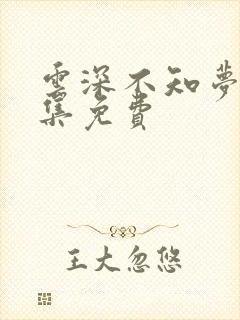 雲深不知夢
集免費
王大忽悠